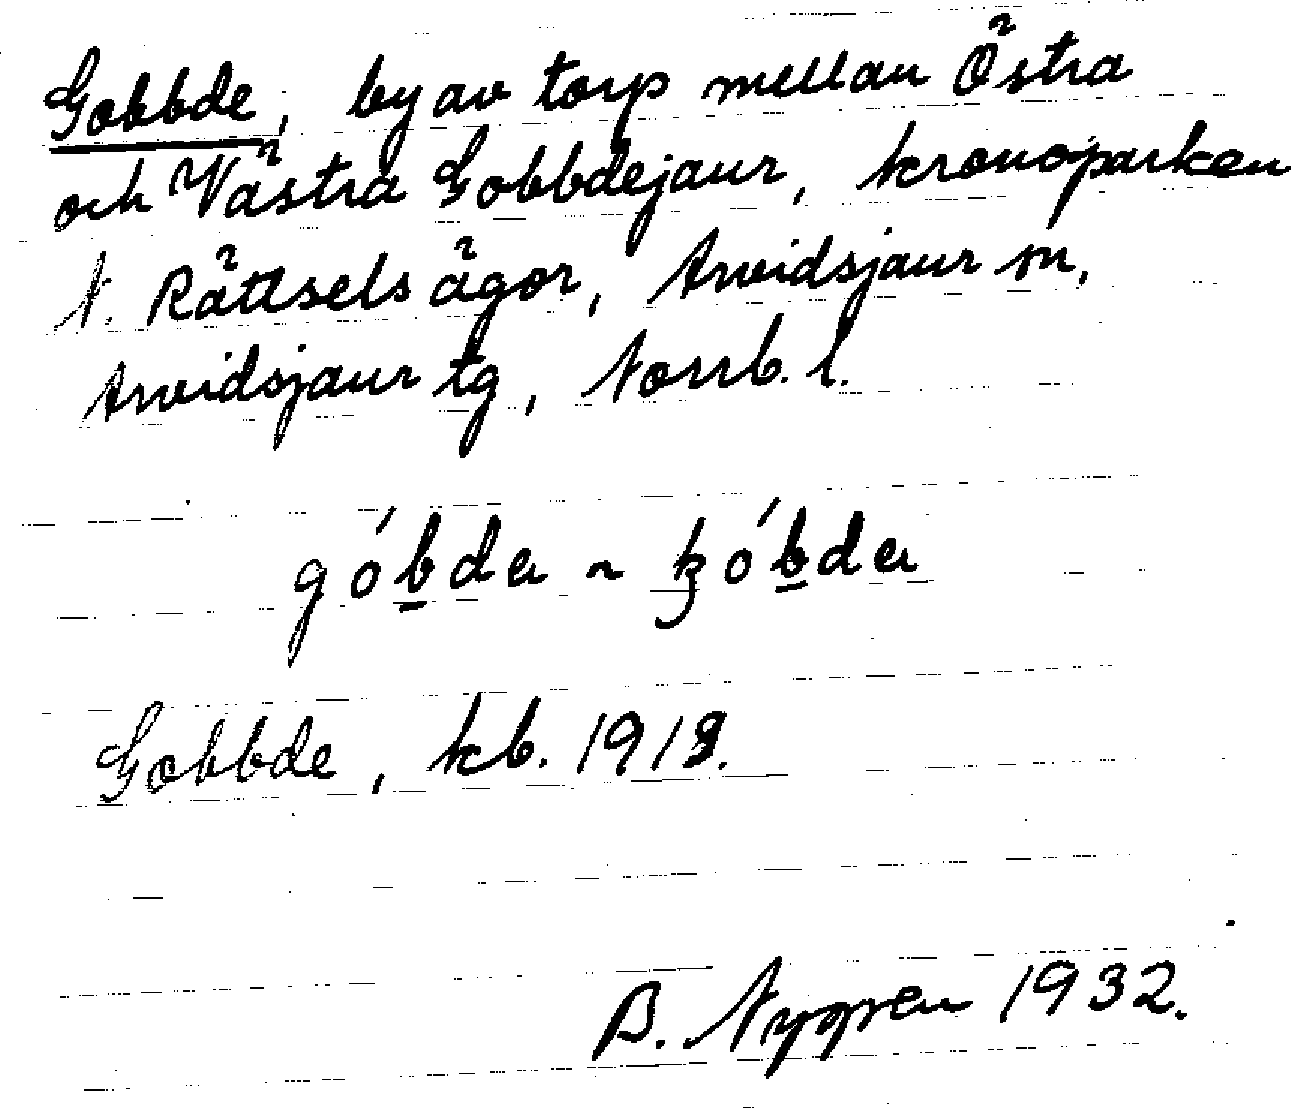 Gobbde, by av torp mellan Östra
och Västra Gobbdejaur, kronoparken
N. Rättsels ägor, Arvidsjaur sn,
Arvidsjaur tg, Norrb. l.
góbda ~ kóbda
Gobbde, kb. 1913.
B. Nygren 1932.